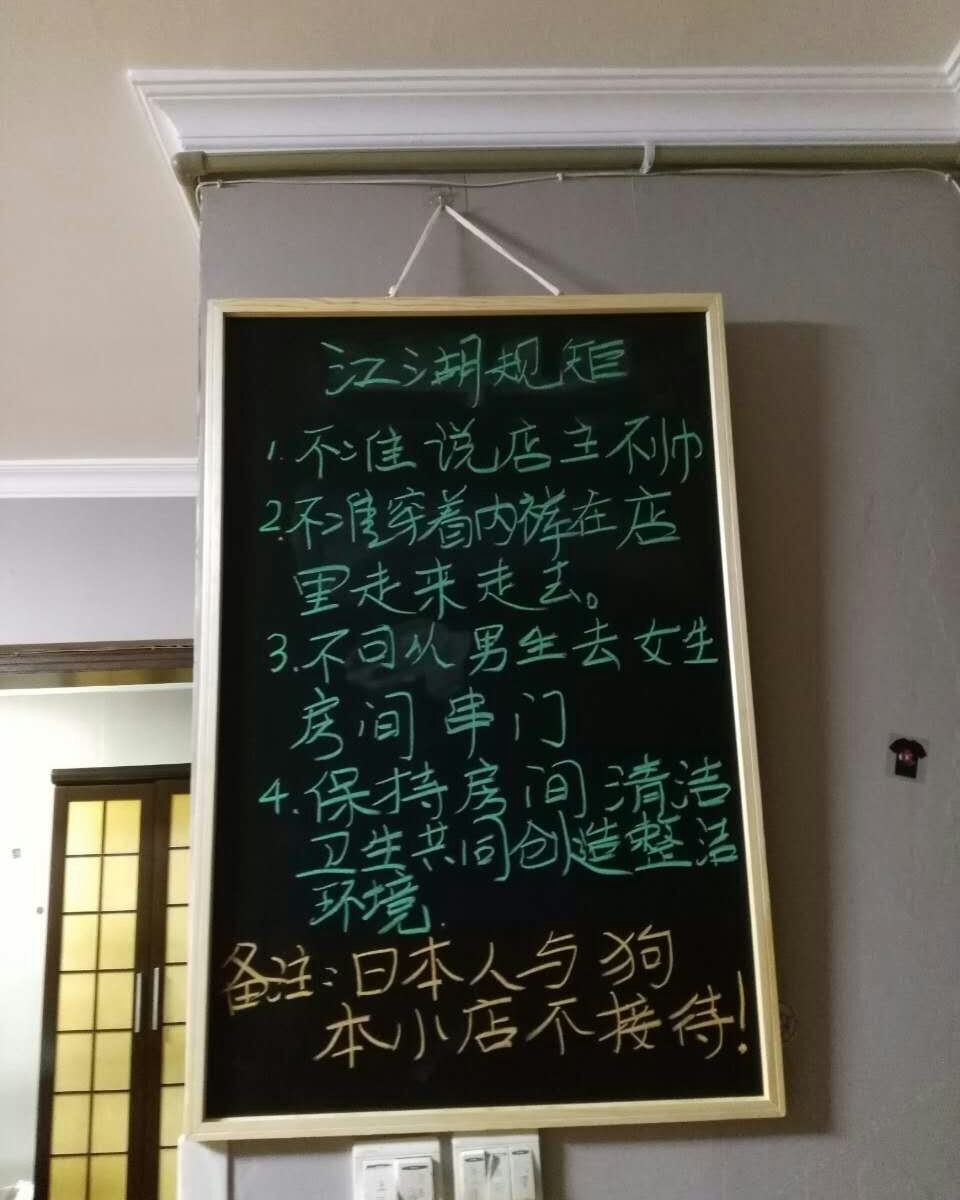 江湖规矩
1.不准说店主不帅
2.不准穿着内裤在店
里走来走去。
3.不可从男生去女生
房间串门
4.保持房间清洁
卫生共同创造整洁
环境.
备注:日本人与狗
本小店不接待!